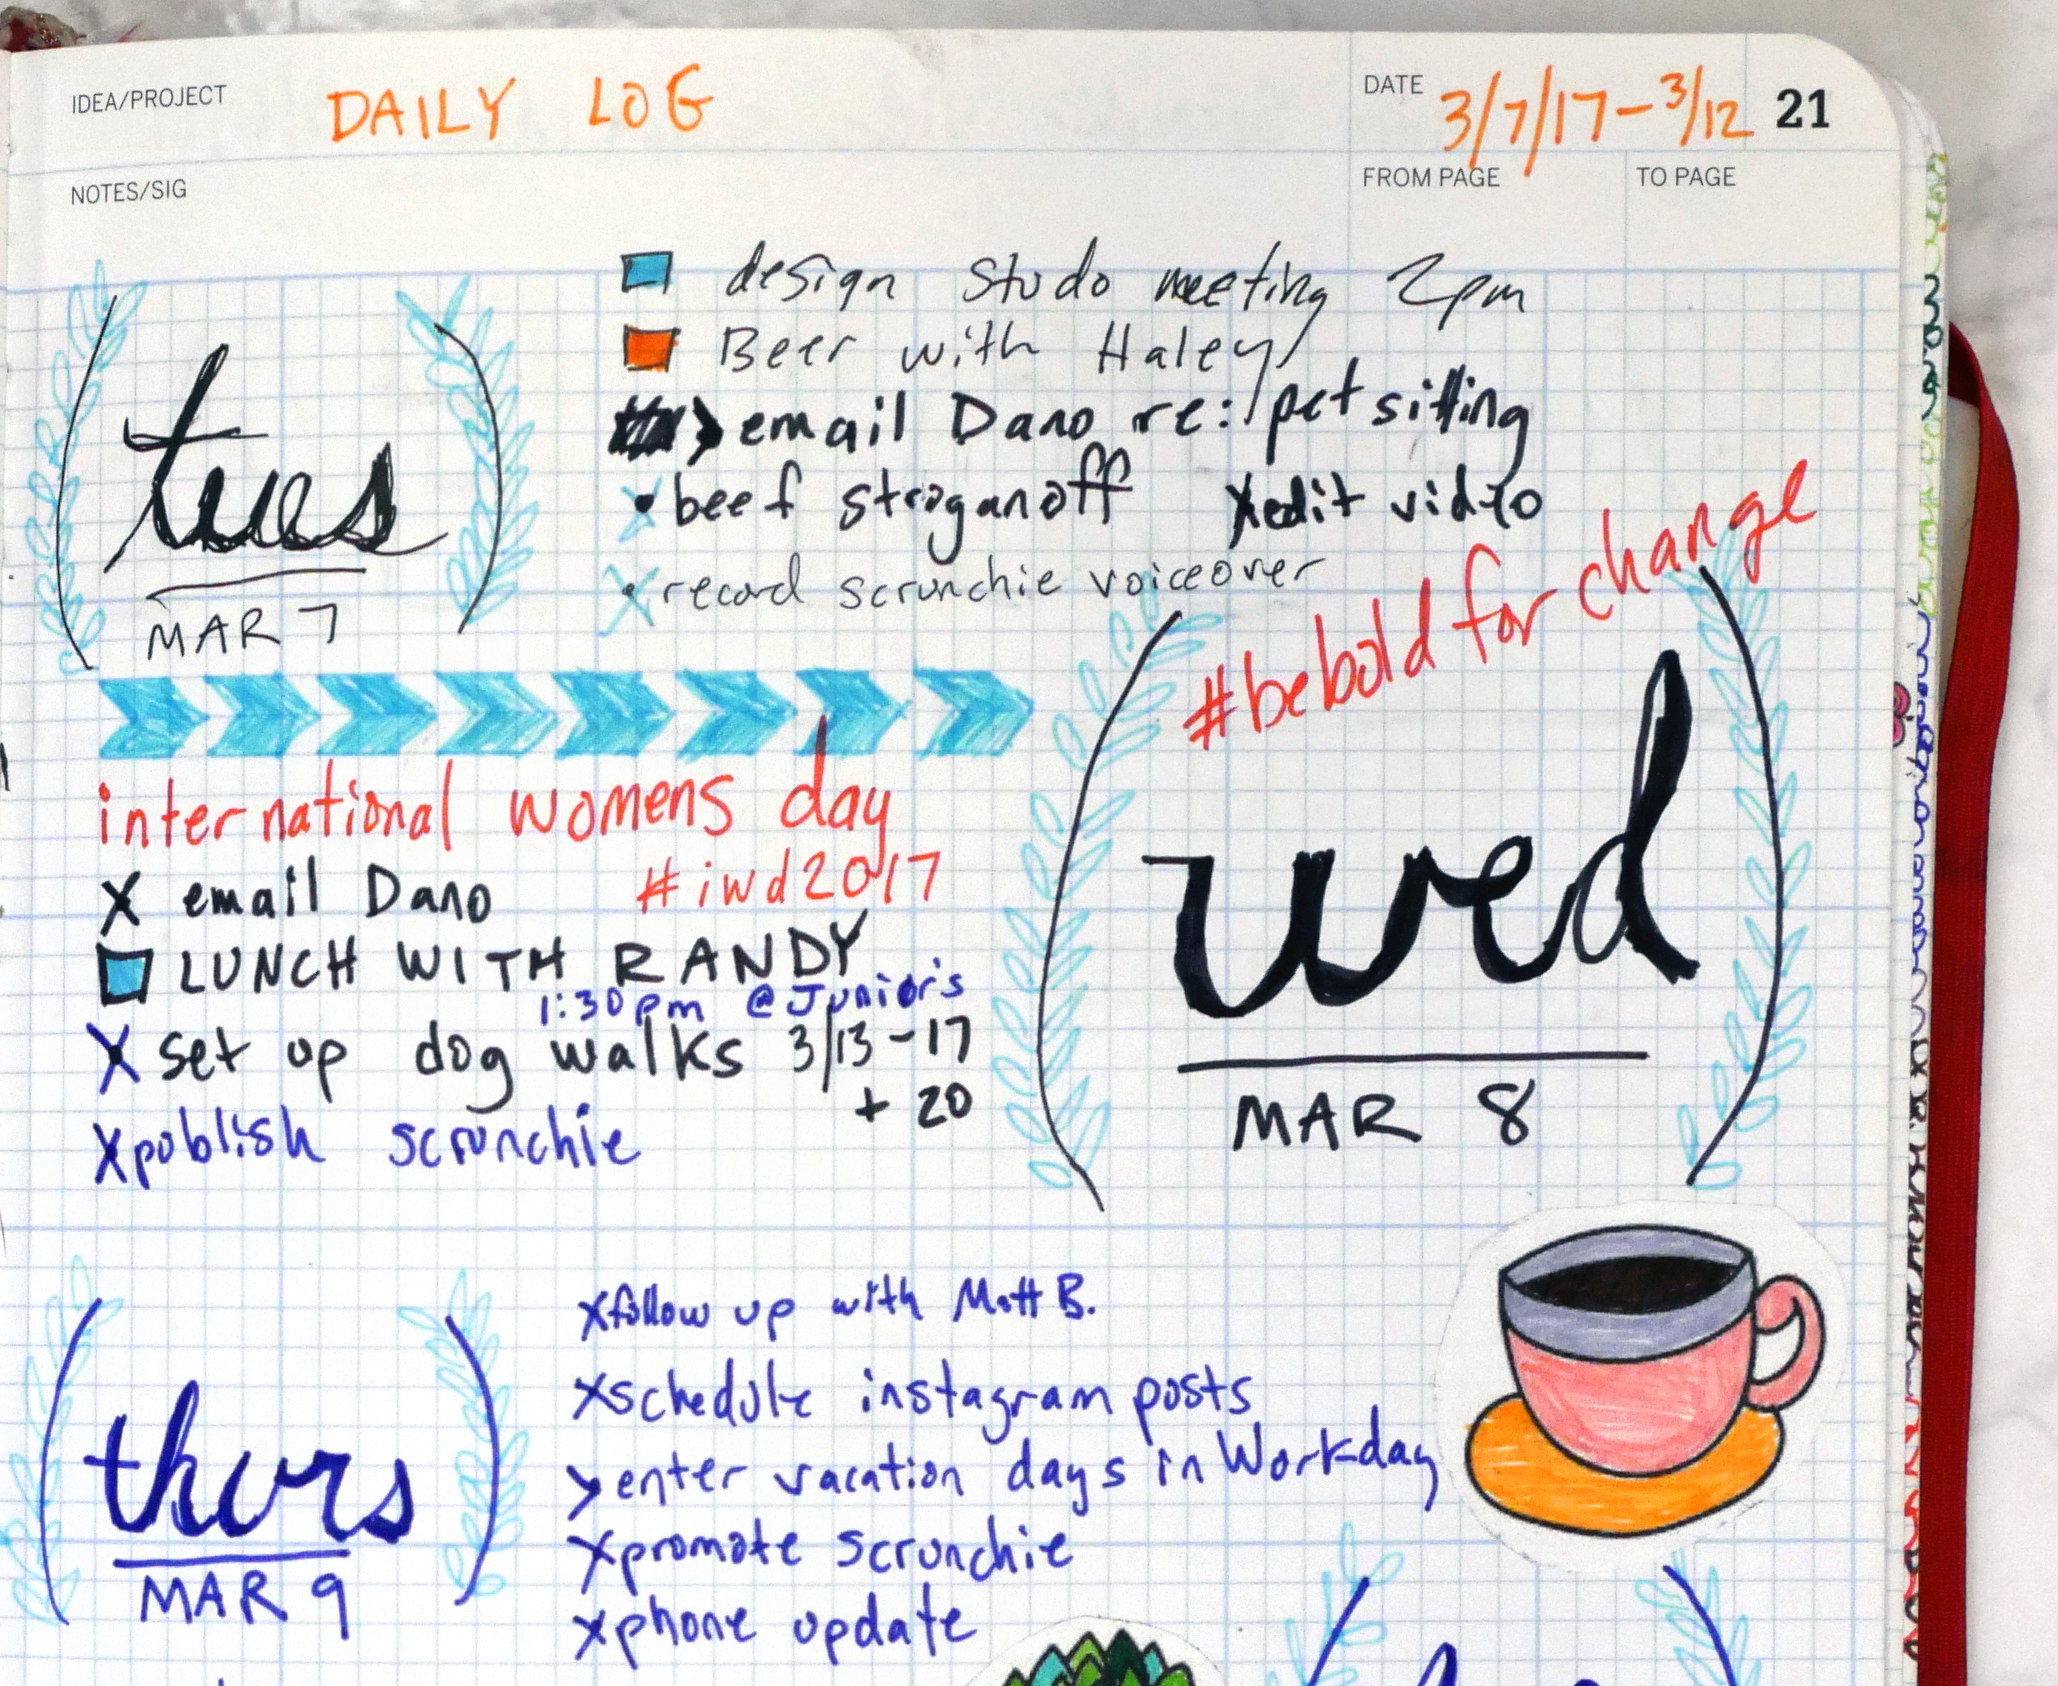 IDEA/PROJECT DAILY LOG DATE 3/7/17-3/12 21
NOTES/SIG FROM PAGE TO PAGE
tues
MAR 7
design Studo meeting 2pm
Beer with Haley
> email Dano re: pet sitting
beef stroganoff X edit video
X record scrunchie voiceover
#bebold for change
wed
MAR 8
international womens day
#iwd2017
X email Dano
LUNCH WITH RANDY
1:30pm @Junior's
X set up dog walks 3/13-17
+ 20
X publish scrunchie
thurs
MAR 9
X follow up with Matt B.
X schedule instagram posts
> enter vacation days in Workday
X promote scrunchie
X phone update